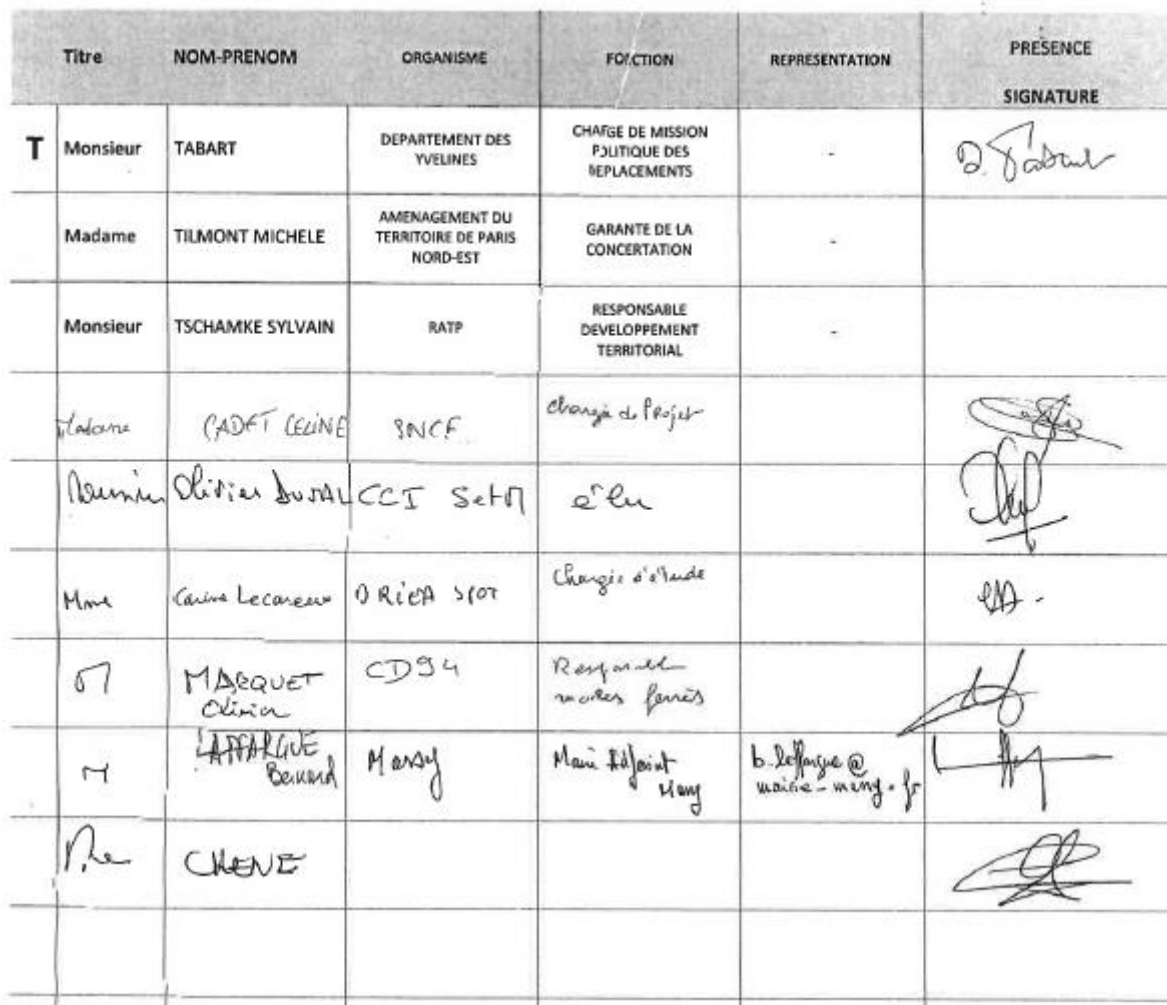 Titre NOM-PRENOM ORGANISME FONCTION REPRESENTATION PRESENCE
SIGNATURE
T Monsieur TABART DEPARTEMENT DES YVELINES CHARGE DE MISSION POLITIQUE DES DEPLACEMENTS - D. Tabart
Madame TILMONT MICHELE AMENAGEMENT DU TERRITOIRE DE PARIS NORD-EST GARANTE DE LA CONCERTATION -
Monsieur TSCHAMKE SYLVAIN RATP RESPONSABLE DEVELOPPEMENT TERRITORIAL -
Madame CADET CELINE SNCF Chargée de Projet
Monsieur Olivier DUVAL CCI Set M élu
Mme Carine Lecareux DRIEA SPOT Chargée d'étude
M MARQUET Olivier CD94 Responsable modes ferrés
M LAFFARGUE Bernard Massy Maire Adjoint Massy b.laffargue@mairie-massy.fr
Mme CHENE